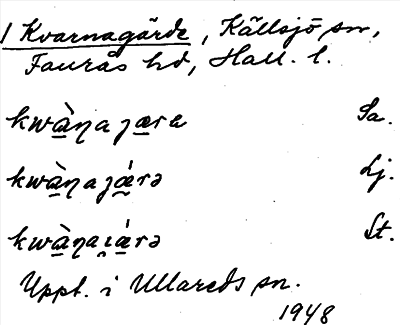 1 Kvarnagärde, Källsjö sn,
Faurås hd, Hall. l.
kwàŋaȷæra Sa.
kwàŋaȷǽrə Lj.
kwàŋaı̯ǽrə St.
Uppt. i Ullareds sn.
1948